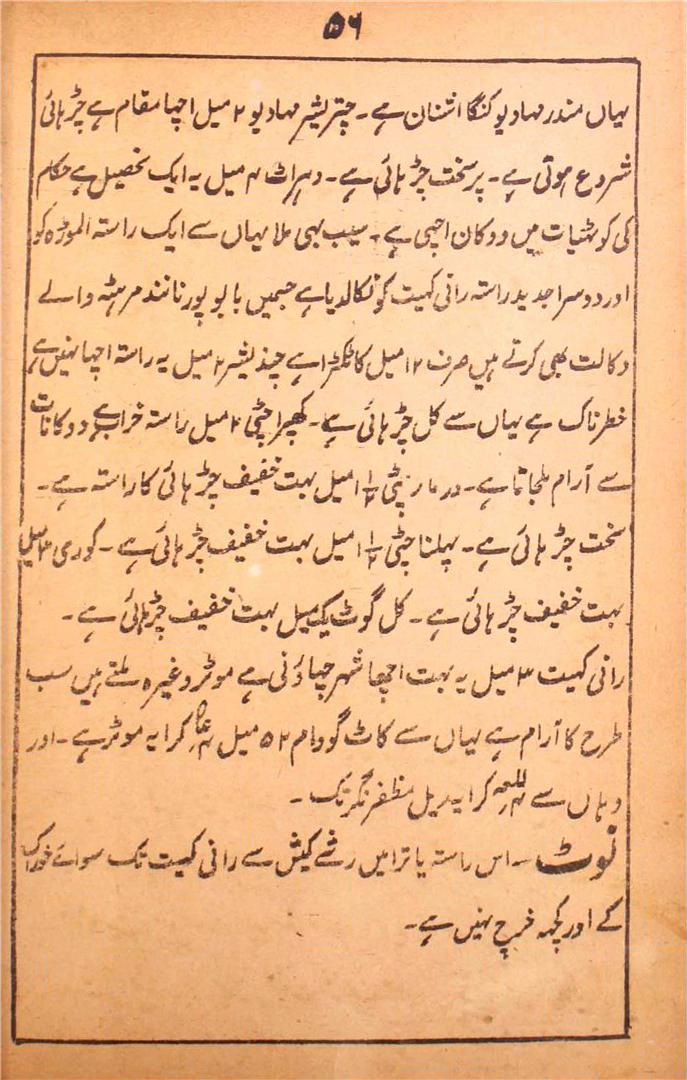 ۵۶
یہاں مندر مہادیو گنگا اشنان ہے۔ چتر یشر مہادیو ۲ میل اچہا مقام ہے چڑہائی
شروع ہوتی ہے۔ پر سخت چڑہائی ہے۔ دہراٹ ۴ میل یہ ایک تحصیل ہے حکام
کی کوٹہیات میں دوکان اچہی ہے۔ سیب بہی ملا یہاں سے ایک راستہ الموڑہ کو
اور دوسرا جدید راستہ رانی کہیت کو نکالدیا ہے جسمیں بابو پورنانند مرہٹہ والے
وکالت بھی کرتے ہیں صرف ۱۲ میل کا ٹکڑا ہے چندیشر ۲ میل یہ راستہ اچہا نہیں ہے
خطرناک ہے یہاں سے کل چڑہائی ہے۔ کھیرا چٹی ۲ میل راستہ خراب ہے دوکانات
سے آرام ملجاتا ہے۔ درمار چٹی ۱½ میل بہت خفیف چڑہائی کا راستہ ہے۔
سخت چڑہائی ہے۔ پہلنا چٹی ۱½ میل بہت خفیف چڑہائی ہے۔ کوری ۳ میل
بہت خفیف چڑہائی ہے۔ کل گوٹ یک میل بہت خفیف چڑہائی ہے۔
رانی کہیت ۳ میل یہ بہت اچھا شہر چہاؤنی ہے موٹر وغیرہ ملتے ہیں سب
طرح کا آرام ہے یہاں سے کاٹ گودام ۵۲ میل کرایہ موٹر ہے۔ اور
وہاں سے کرایہ ریل مظفر نگر تک۔
نوٹ۔ اس راستہ یاترا میں رشے کیش سے رانی کہیت تک سوائے خوراک
کے اور کچہہ خرچ نہیں ہے۔